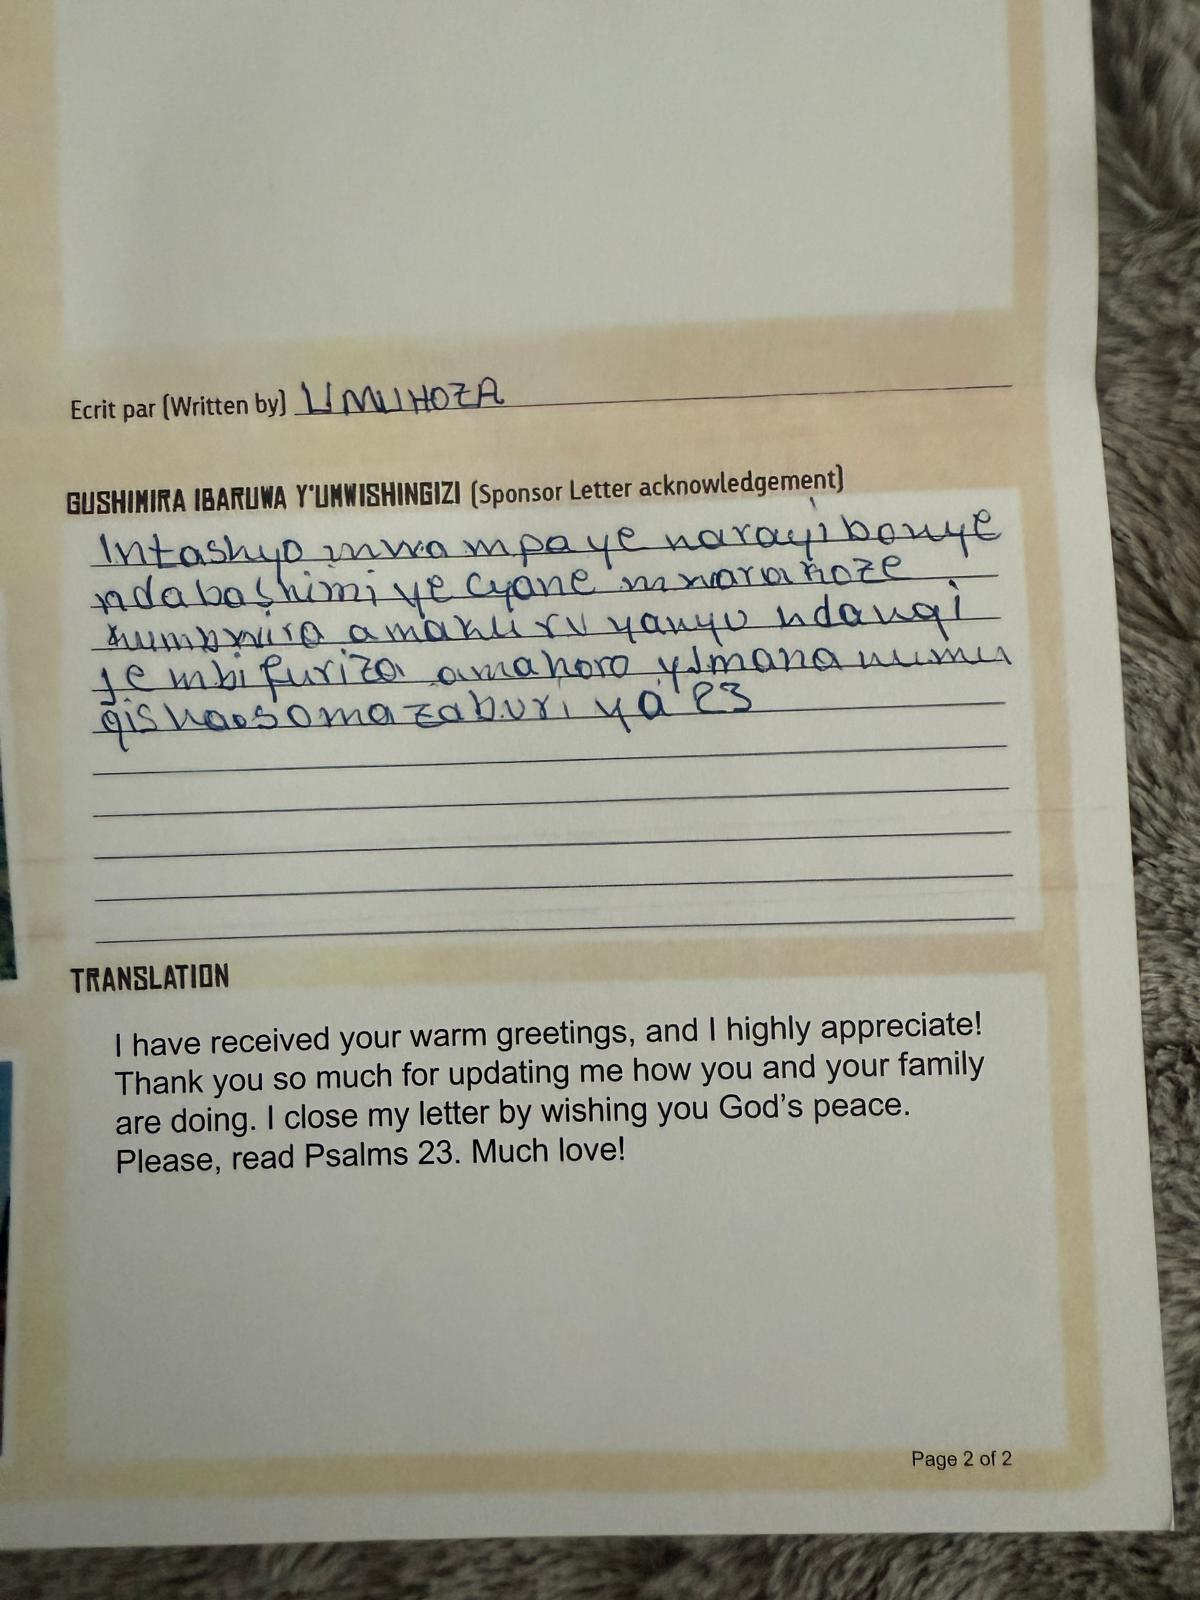 Ecrit par (Written by) UMUHOZA
GUSHIMIRA IBARUWA Y'UMWISHINGIZI (Sponsor Letter acknowledgement)
Intashyo mwa mpaye narayibonye
ndabashimiye cyane mwarakoze
kumbwira amakuru yanyu ndangi
je mbifuriza amahoro y'Imana mumu
gishaosoma zaburi ya 23
TRANSLATION
I have received your warm greetings, and I highly appreciate!
Thank you so much for updating me how you and your family
are doing. I close my letter by wishing you God's peace.
Please, read Psalms 23. Much love!
Page 2 of 2